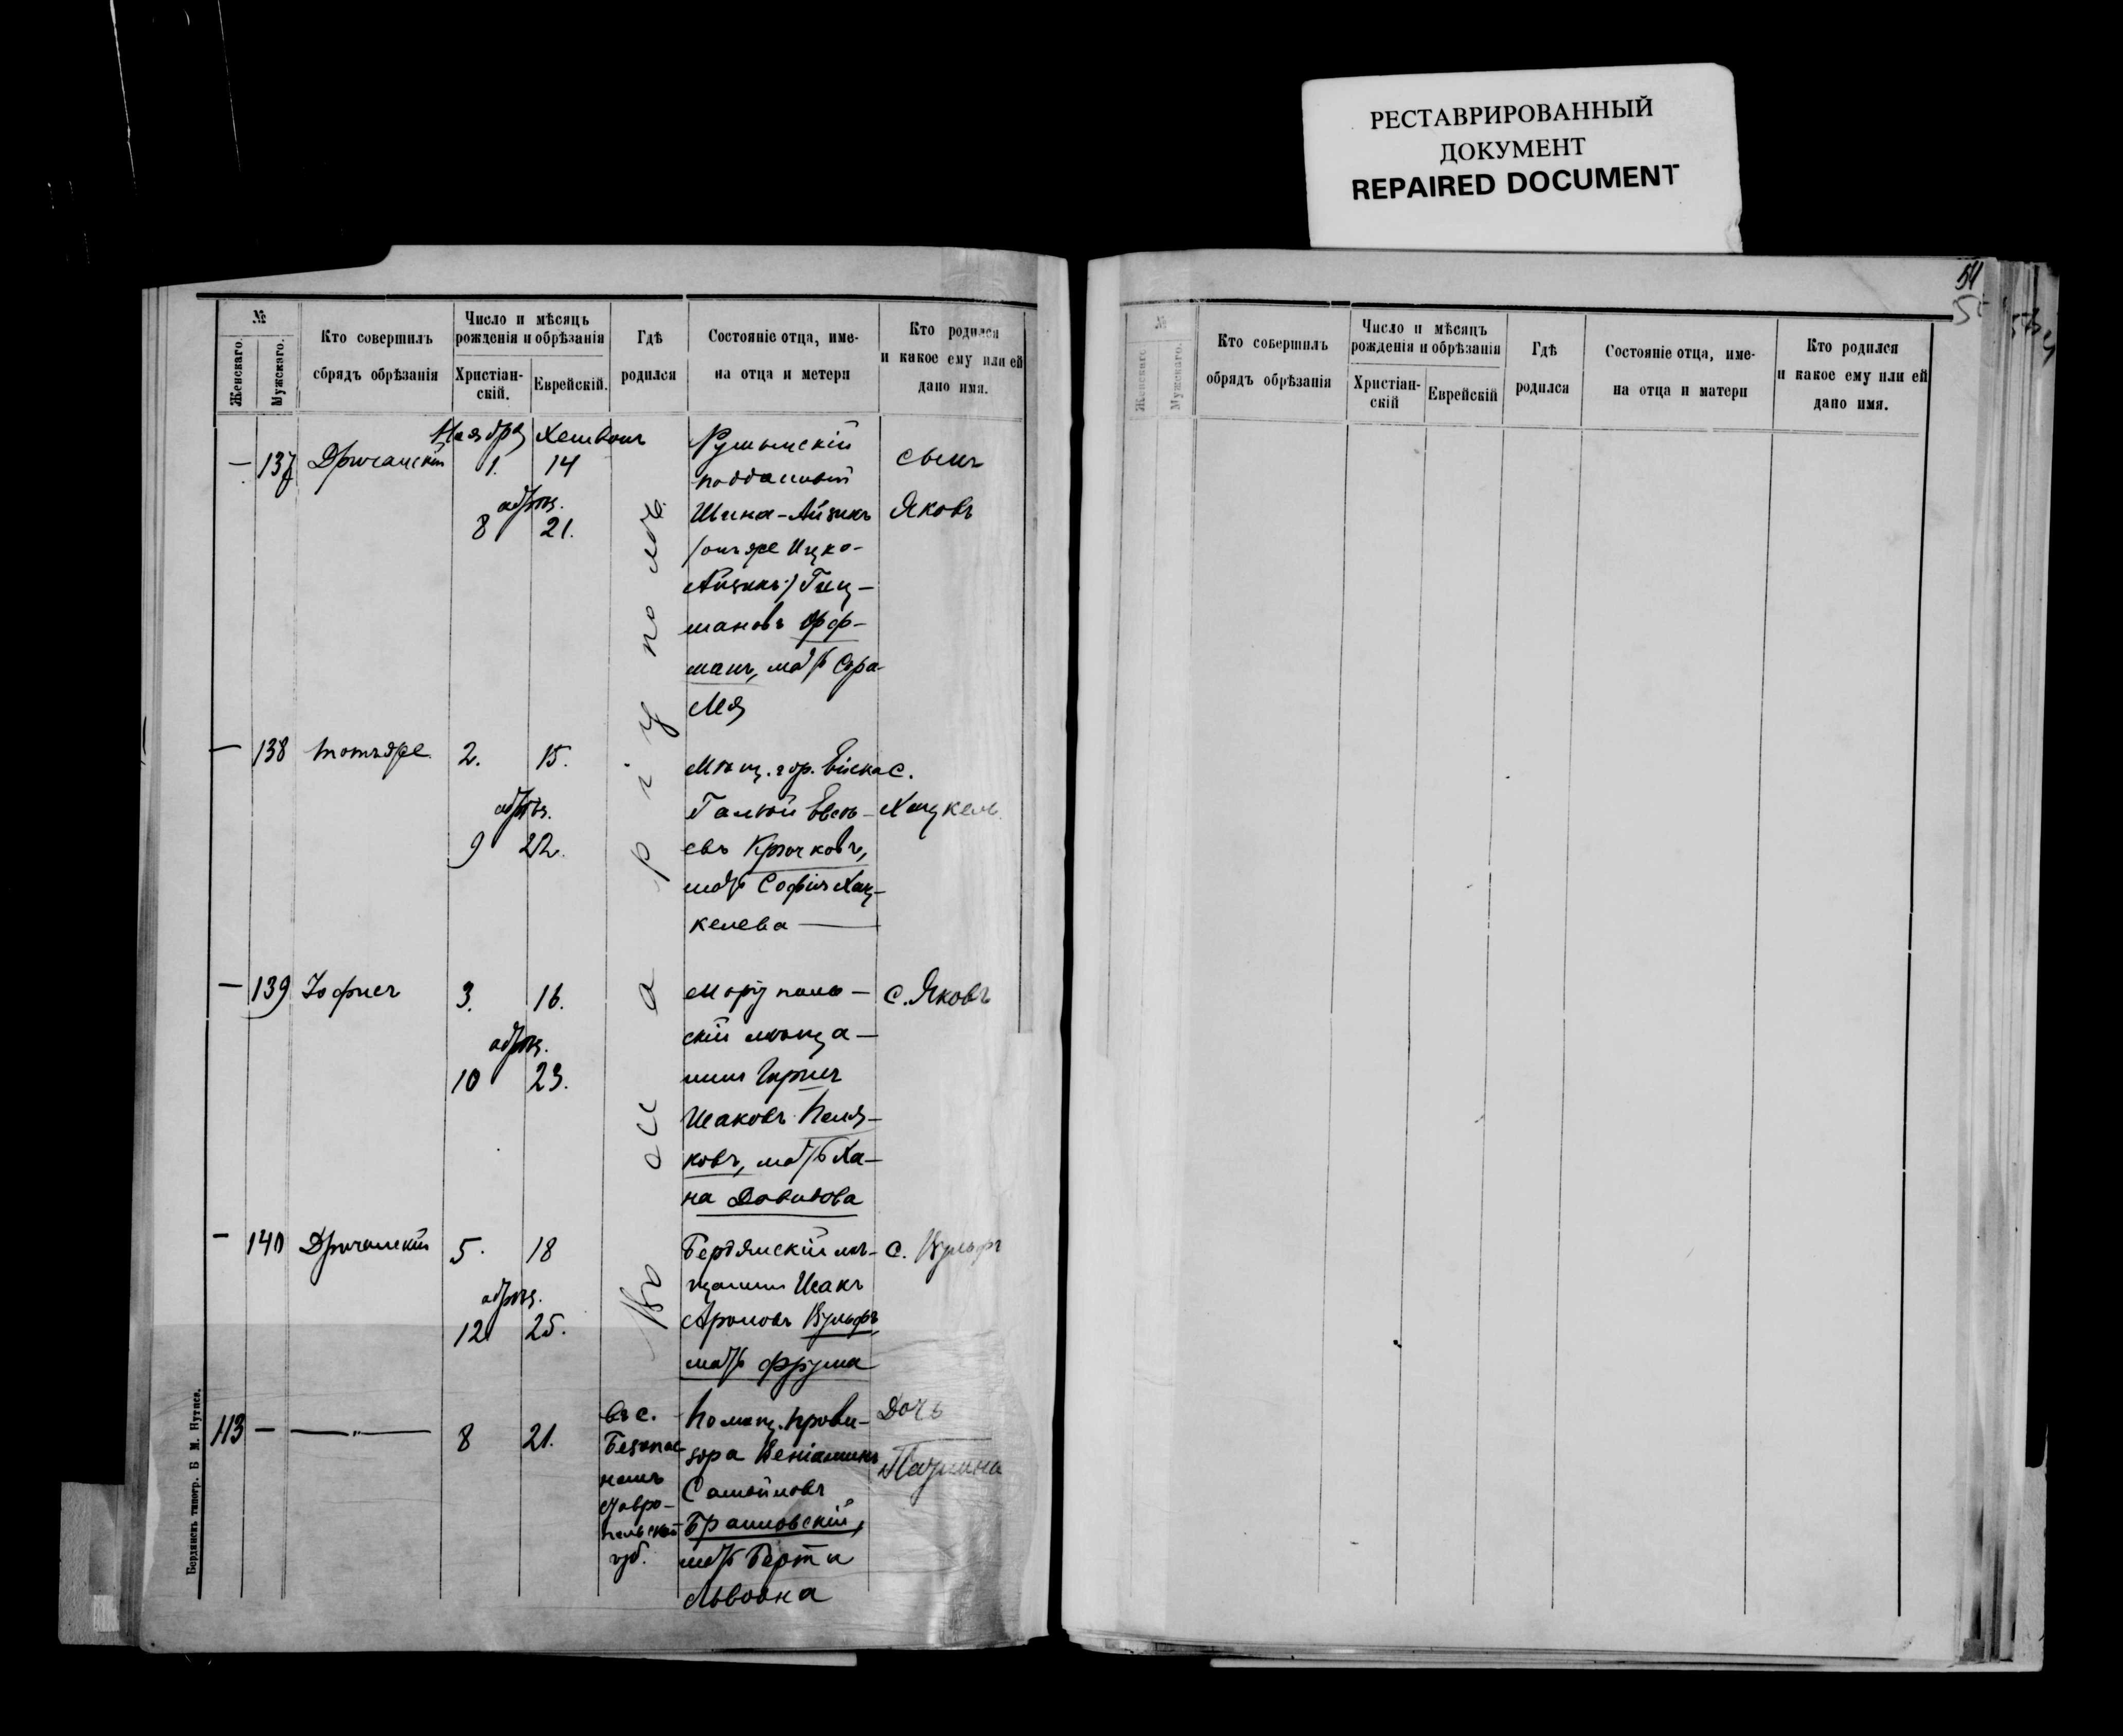 РЕСТАВРИРОВАННЫЙ
ДОКУМЕНТ
REPAIRED DOCUMENT
№
Женскаго.
Мужскаго.
Кто совершилъ
обрядъ обрѣзанія
Число и мѣсяцъ
рожденія и обрѣзанія
Христіан-
скій.
Еврейскій.
Гдѣ
родился
Состояніе отца, име-
на отца и метери
Кто родился
и какое ему или ей
дано имя.
Ноября Хешвонъ
— 137 Дричанскій 1. 14
обрѣз.
8 21.
Румынскій
подданный
Шина-Айзикъ
/онъ же Ицко-
Айзикъ/ Гиц-
мановъ Офф-
манъ, мать Сура-
Лея
сынъ
Яковъ
— 138 тотъ же 2. 15.
обрѣз.
9 22.
Мѣщ. гор. Ейска
Евсѣ-
евъ Крючковъ,
мать Софія Хац-
келева
с.
Хацкель
— 139 Іофисъ 3. 16.
обрѣз.
10 23.
Маріупо
скій мѣща-
нинъ Гиршъ
Исаковъ Поля-
ковъ, мать Ха-
на Давидова
с. Яковъ
— 140 Дричанскій 5. 18
обрѣз.
12 25.
Бердянскій мѣ-
щанинъ Исакъ
Ароновъ Вульфъ,
мать Фрума
с. Вульфъ
Въ Маріуполѣ
113 — — " — 8 21.
въ с.
Безопас
номъ
Ставро-
польской
губ.
Помощ. прови-
зора Веніаминъ
Самойловъ
Браиловскій,
мать Берта
Львовна
Дочь
Бердянскъ типогр. Б М. Нутиса.
54
№
Женскаго
Мужскаго.
Кто совершилъ
обрядъ обрѣзанія
Число и мѣсяцъ
рожденія и обрѣзанія
Христіан-
скій
Еврейскій
Гдѣ
родился
Состояніе отца, име-
на отца и матери
Кто родился
и какое ему или ей
дано имя.